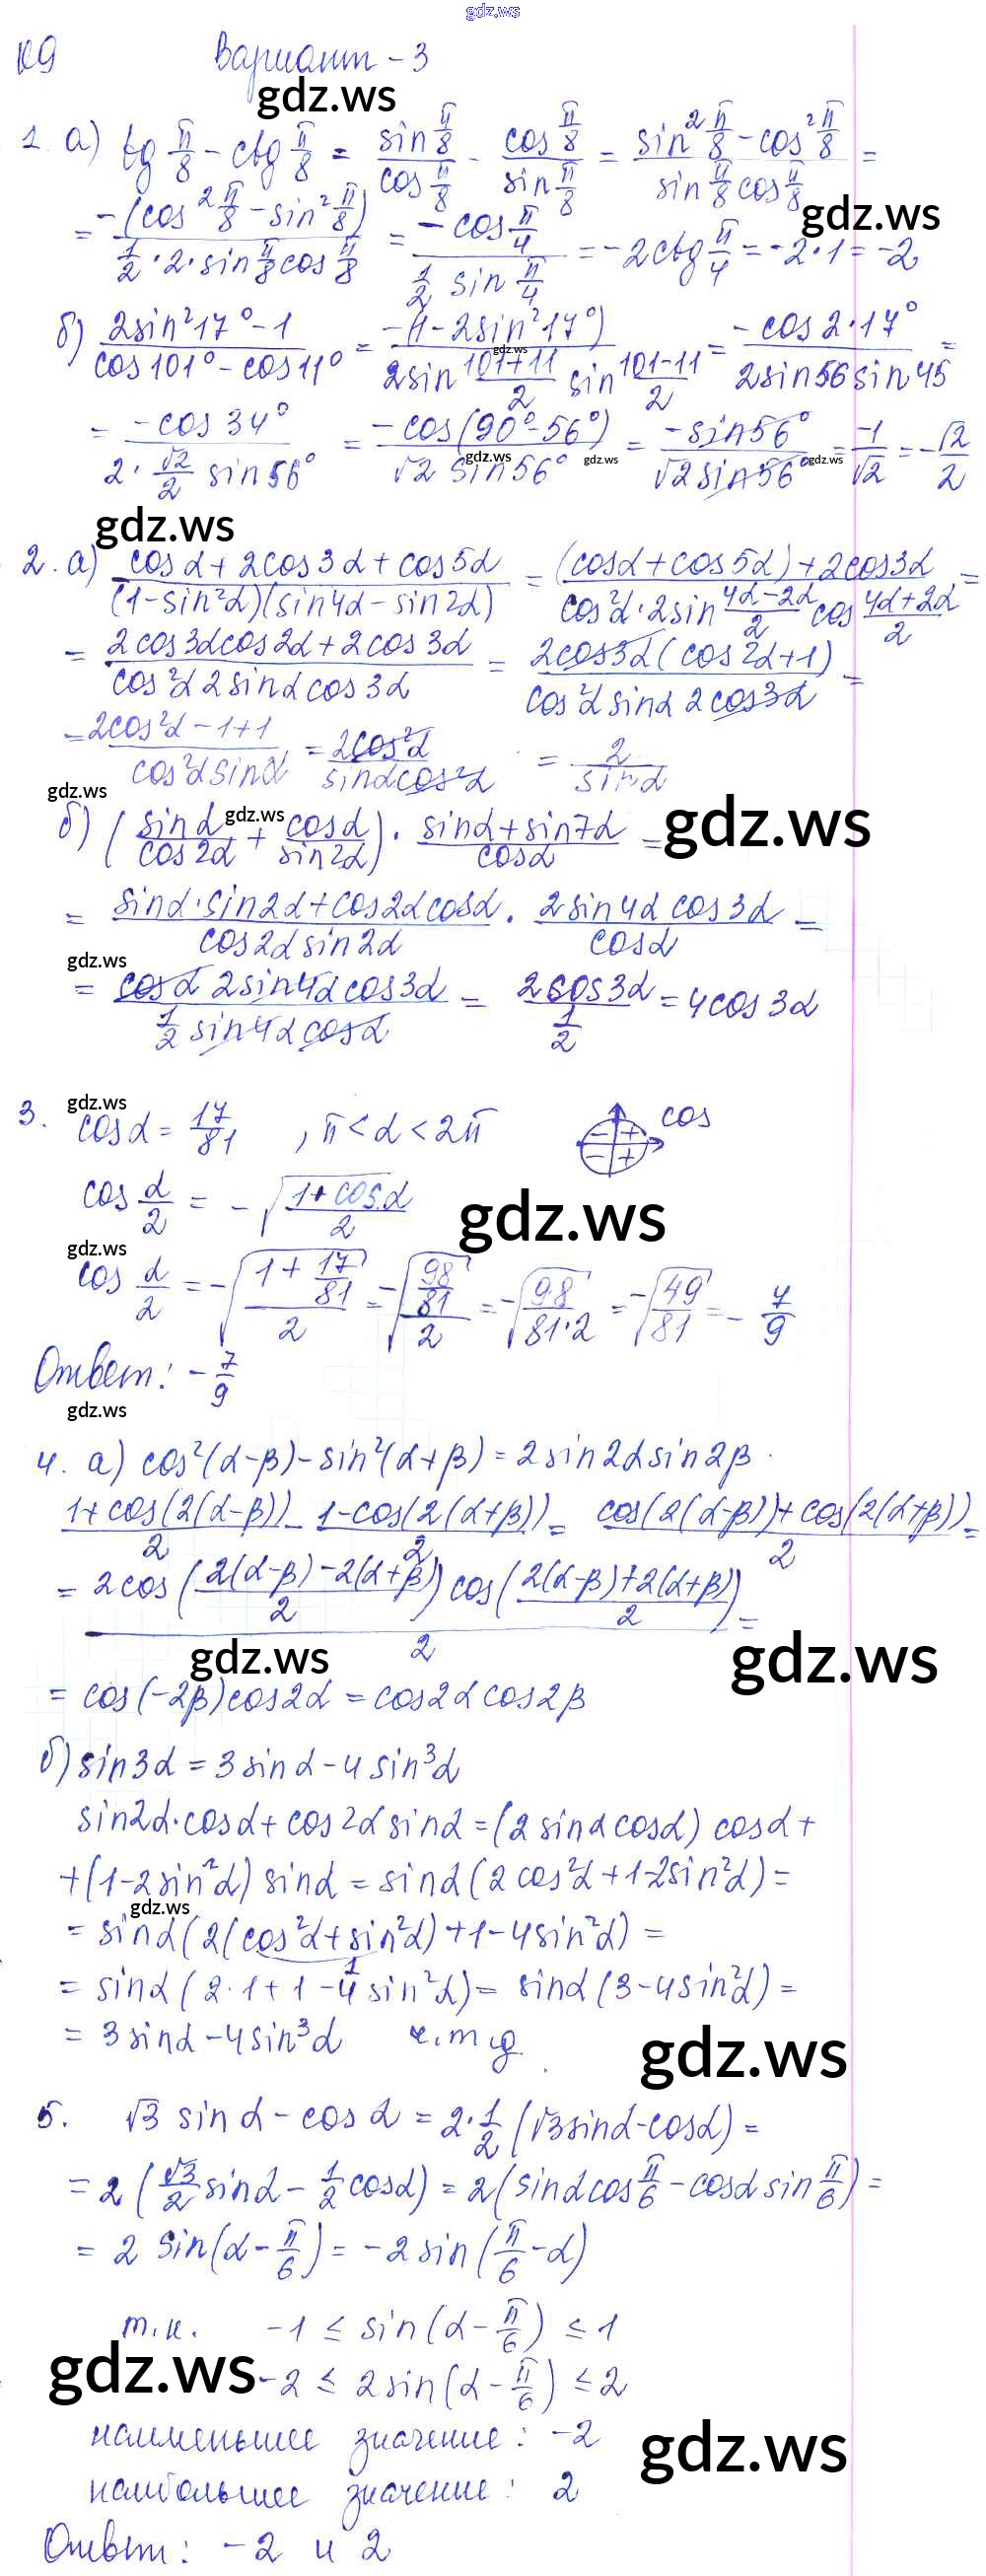 gdz.ws
К9 Вариант - 3
gdz.ws
1. а) tg π/8 - ctg π/8 = sin π/8 / cos π/8 - cos π/8 / sin π/8 = (sin² π/8 - cos² π/8) / (sin π/8 cos π/8) =
gdz.ws
= -(cos² π/8 - sin² π/8) / (1/2 · 2 · sin π/8 cos π/8) = -cos π/4 / (1/2 sin π/4) = -2ctg π/4 = -2·1 = -2
б) (2sin²17° - 1) / (cos101° - cos11°) = -(1-2sin²17°) / (2sin (101+11)/2 sin (101-11)/2) = -cos2·17° / (2sin56 sin45) =
gdz.ws
= -cos34° / (2·√2/2 sin56°) = -cos(90°-56°) / (√2 sin56°) = -sin56° / (√2sin56°) = -1/√2 = -√2/2
gdz.ws gdz.ws gdz.ws
gdz.ws
2. а) (cosα + 2cos3α + cos5α) / ((1-sin²α)(sin4α - sin2α)) = ((cosα + cos5α) + 2cos3α) / (cos²α·2sin (4α-2α)/2 cos (4α+2α)/2) =
= (2cos3αcos2α + 2cos3α) / (cos²α2sinαcos3α) = 2cos3α(cos2α+1) / (cos²αsinα2cos3α) =
= (2cos²α - 1+1) / (cos²αsinα) = 2cos²α / (sinαcos²α) = 2 / sinα
gdz.ws
gdz.ws
gdz.ws
б) (sinα/cos2α + cosα/sin2α) · (sinα + sin7α)/cosα =
= (sinα·sin2α + cos2αcosα) / (cos2αsin2α) · 2sin4αcos3α / cosα =
gdz.ws
= cosα2sin4αcos3α / (1/2 sin4αcosα) = 2cos3α / (1/2) = 4cos3α
gdz.ws
3. cosα = 17/81 , π < α < 2π cos
- + - +
cos α/2 = -√((1+cosα)/2)
gdz.ws
gdz.ws
cos α/2 = -√((1+17/81)/2) = -√((98/81)/2) = -√(98/(81·2)) = -√(49/81) = -7/9
Ответ: -7/9
gdz.ws
4. а) cos²(α-β) - sin²(α+β) = 2sin2αsin2β.
(1+cos(2(α-β)))/2 - (1-cos(2(α+β)))/2 = (cos(2(α-β)) + cos(2(α+β)))/2 =
= 2cos((2(α-β)-2(α+β))/2) cos((2(α-β)+2(α+β))/2) / 2 =
gdz.ws
gdz.ws
= cos(-2β)cos2α = cos2αcos2β
б) sin3α = 3sinα - 4sin³α
sin2α·cosα + cos2αsinα = (2sinαcosα)cosα +
+ (1-2sin²α)sinα = sinα(2cos²α + 1-2sin²α) =
gdz.ws
= sinα(2(cos²α + sin²α) + 1 - 4sin²α) =
1
= sinα(2·1 + 1 - 4sin²α) = sinα(3 - 4sin²α) =
= 3sinα - 4sin³α ч.т.д.
gdz.ws
5. √3 sinα - cosα = 2·1/2(√3sinα - cosα) =
= 2(√3/2 sinα - 1/2 cosα) = 2(sinαcos π/6 - cosαsin π/6) =
= 2 sin(α - π/6) = -2sin(π/6 - α)
т.к. -1 ≤ sin(α - π/6) ≤ 1
gdz.ws
-2 ≤ 2sin(α - π/6) ≤ 2
наименьшее значение: -2
gdz.ws
наибольшее значение: 2
Ответ: -2 и 2